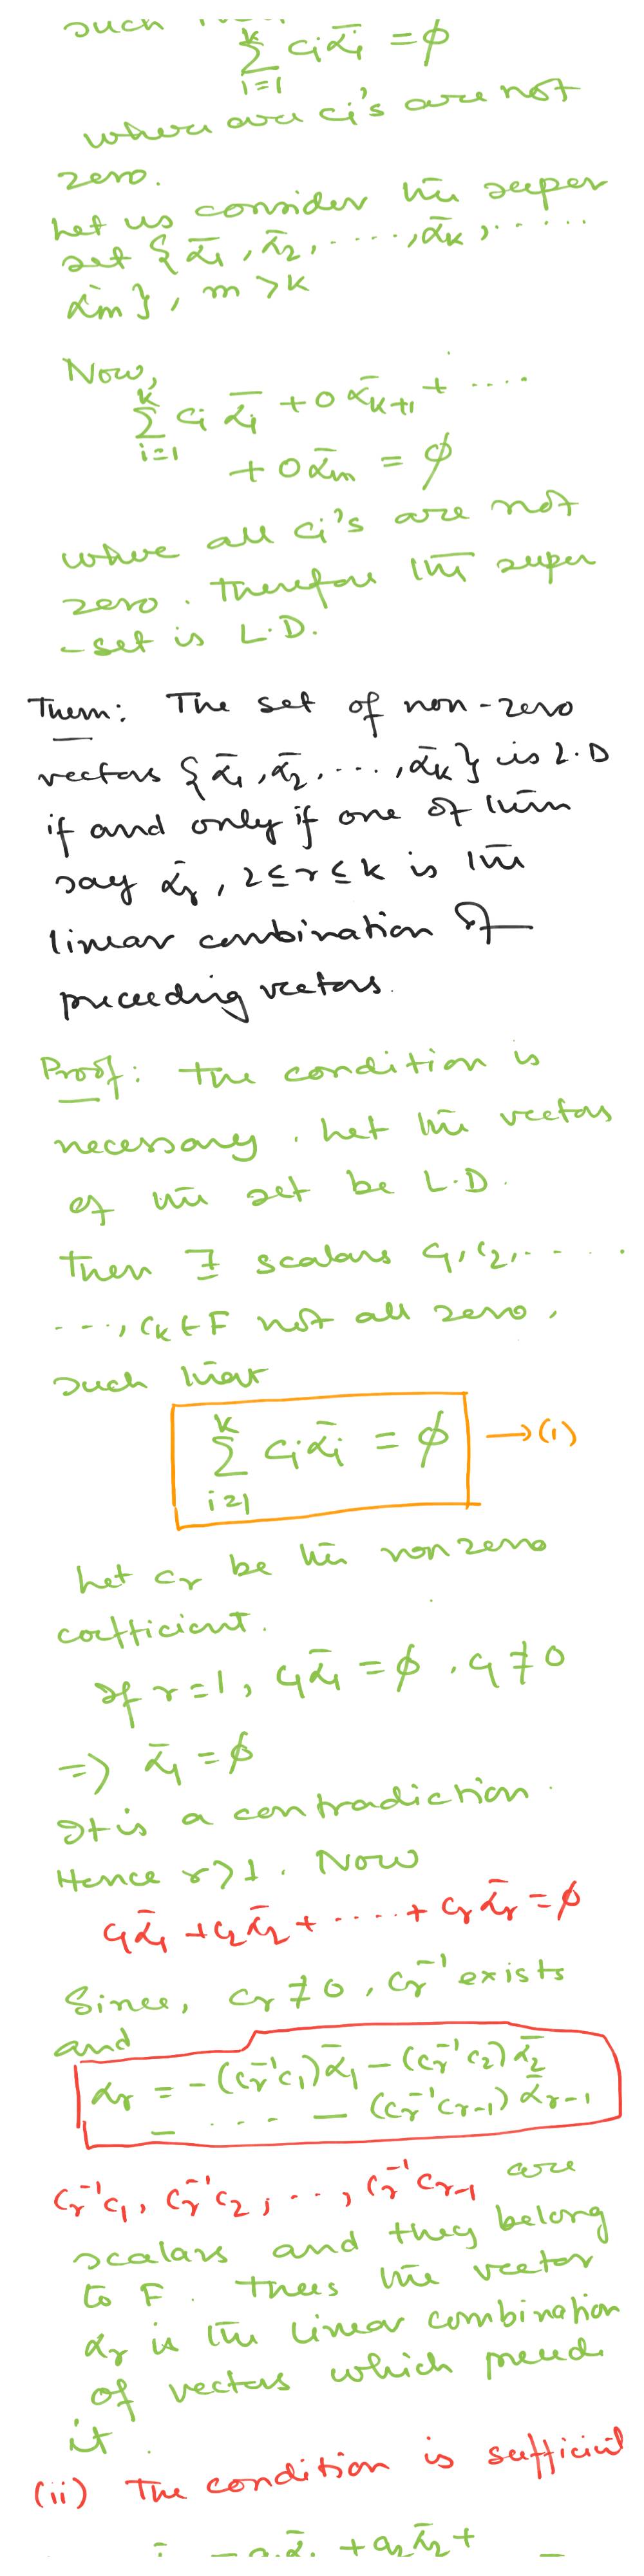 such
k
∑ cᵢᾱᵢ = ϕ
i=1
where all cᵢ's are not
zero.
Let us consider the super
set {ᾱ₁, ᾱ₂, ....., ᾱₖ, .....
ᾱₘ}, m > k
Now,
k
∑ cᵢ ᾱᵢ + 0 ᾱₖ₊₁ + ....
i=1
+ 0 ᾱₘ = ϕ
where all cᵢ's are not
zero. Therefore the super
-set is L.D.
Them: The set of non-zero
vectors {ᾱ₁, ᾱ₂, ...., ᾱₖ} is L.D
if and only if one of them
say ᾱᵣ, 2 ≤ r ≤ k is the
linear combination of
preceeding vectors.
Proof: The condition is
necessary. Let the vectors
of the set be L.D.
Then ∃ scalars c₁, c₂, ....
...., cₖ ∈ F not all zero,
such that
k
∑ cᵢᾱᵢ = ϕ → (1)
i=1
Let cᵣ be the non zero
coefficient.
If r=1, c₁ᾱ₁ = ϕ, c₁ ≠ 0
=> ᾱ₁ = ϕ
It is a contradiction.
Hence r>1. Now
c₁ᾱ₁ + c₂ᾱ₂ + ..... + cᵣᾱᵣ = ϕ
Since, cᵣ ≠ 0, cᵣ⁻¹ exists
and
αᵣ = -(cᵣ⁻¹c₁)ᾱ₁ - (cᵣ⁻¹c₂)ᾱ₂
- .... - (cᵣ⁻¹cᵣ₋₁) ᾱᵣ₋₁
cᵣ⁻¹c₁, cᵣ⁻¹c₂, ..., cᵣ⁻¹cᵣ₋₁ are
scalars and they belong
to F. Thus the vector
αᵣ is the linear combination
of vectors which
it.
(ii) The condition is
+ a₂ᾱ₂ +